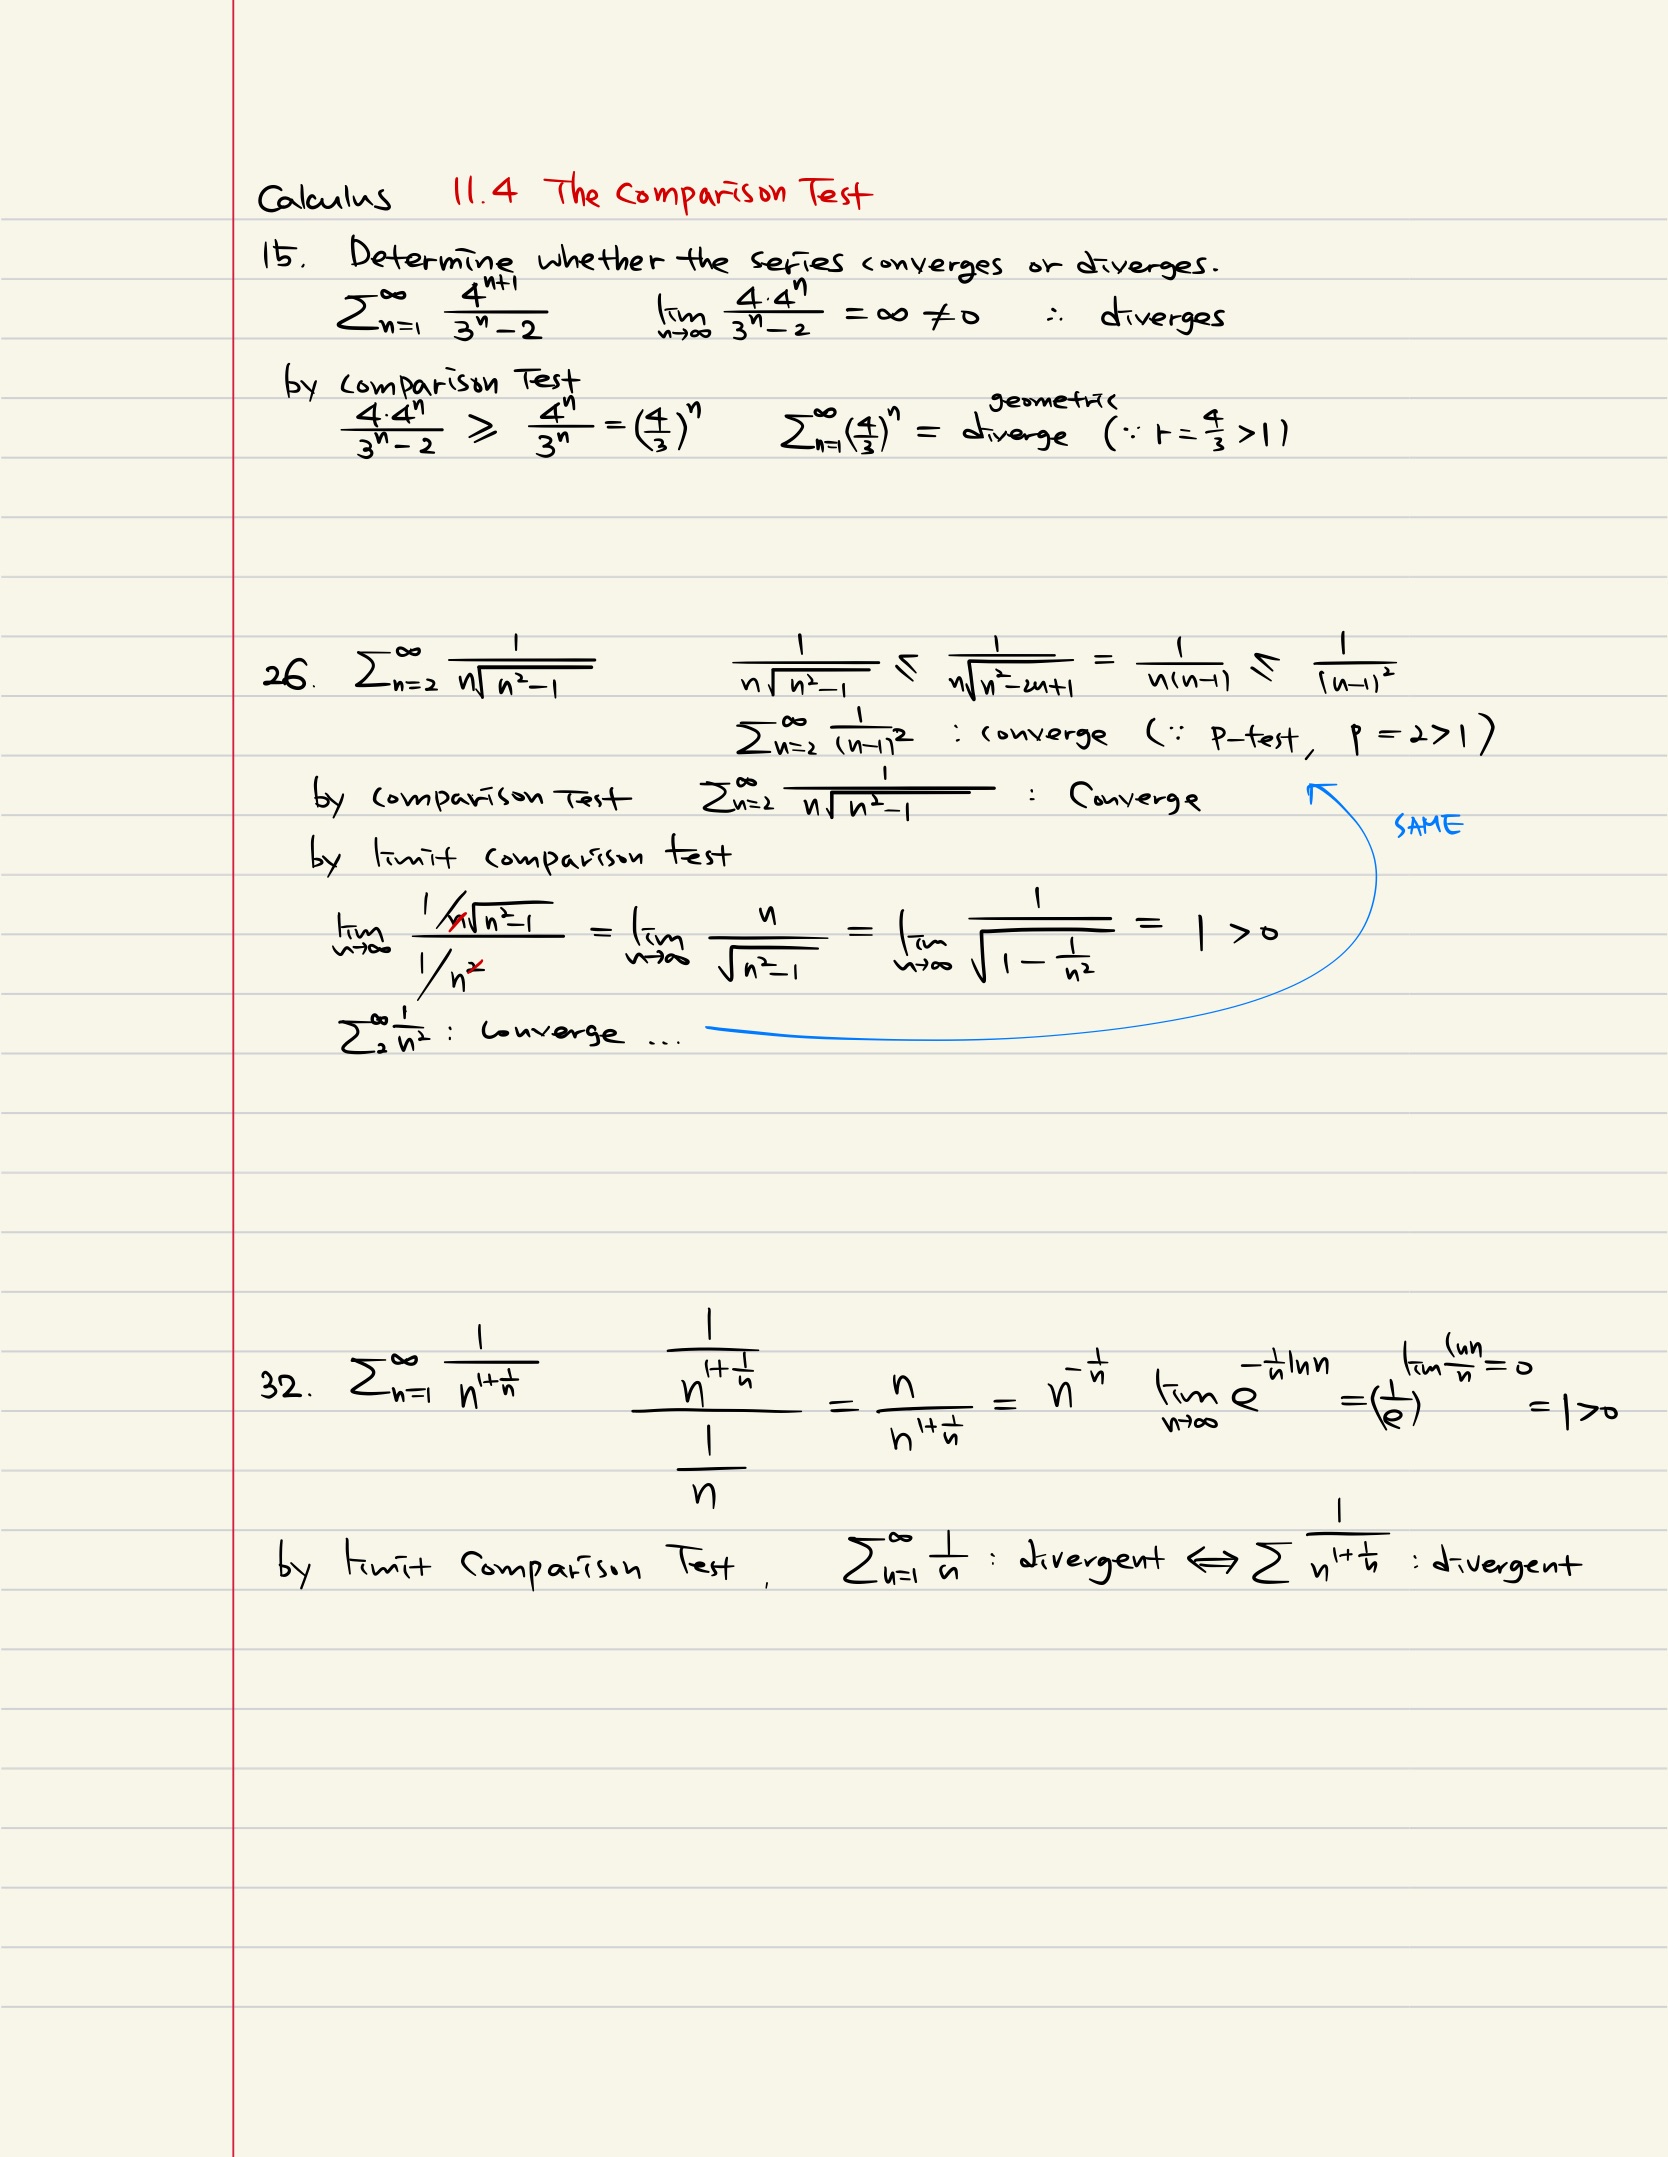 Calculus 11.4 The Comparison Test
15. Determine whether the series converges or diverges.
∑_{n=1}^{∞} 4^{n+1}/(3^n-2)   lim_{n→∞} 4·4^n/(3^n-2) = ∞ ≠ 0 ∴ diverges
by comparison Test
4·4^n/(3^n-2) ≥ 4^n/3^n = (4/3)^n   ∑_{n=1}^{∞} (4/3)^n = geometric diverge (∵ r = 4/3 > 1)
26. ∑_{n=2}^{∞} 1/(n√(n²-1))   1/(n√(n²-1)) ≤ 1/(n√(n²-2n+1)) = 1/(n(n-1)) ≤ 1/(n-1)²
∑_{n=2}^{∞} 1/(n-1)² : converge (∵ p-test, p = 2 > 1)
by comparison Test ∑_{n=2}^{∞} 1/(n√(n²-1)) : Converge
SAME
by limit comparison test
lim_{n→∞} (1/n√(n²-1))/(1/n²) = lim_{n→∞} n/√(n²-1) = lim_{n→∞} 1/√(1-1/n²) = 1 > 0
∑_{2}^{∞} 1/n² : converge ...
32. ∑_{n=1}^{∞} 1/n^{1+1/n}   (1/n^{1+1/n})/(1/n) = n/n^{1+1/n} = n^{-1/n}   lim_{n→∞} e^{-1/n ln n} = (1/e)^{lim ln n/n = 0} = 1 > 0
by limit Comparison Test, ∑_{n=1}^{∞} 1/n : divergent ⟺ ∑ 1/n^{1+1/n} : divergent